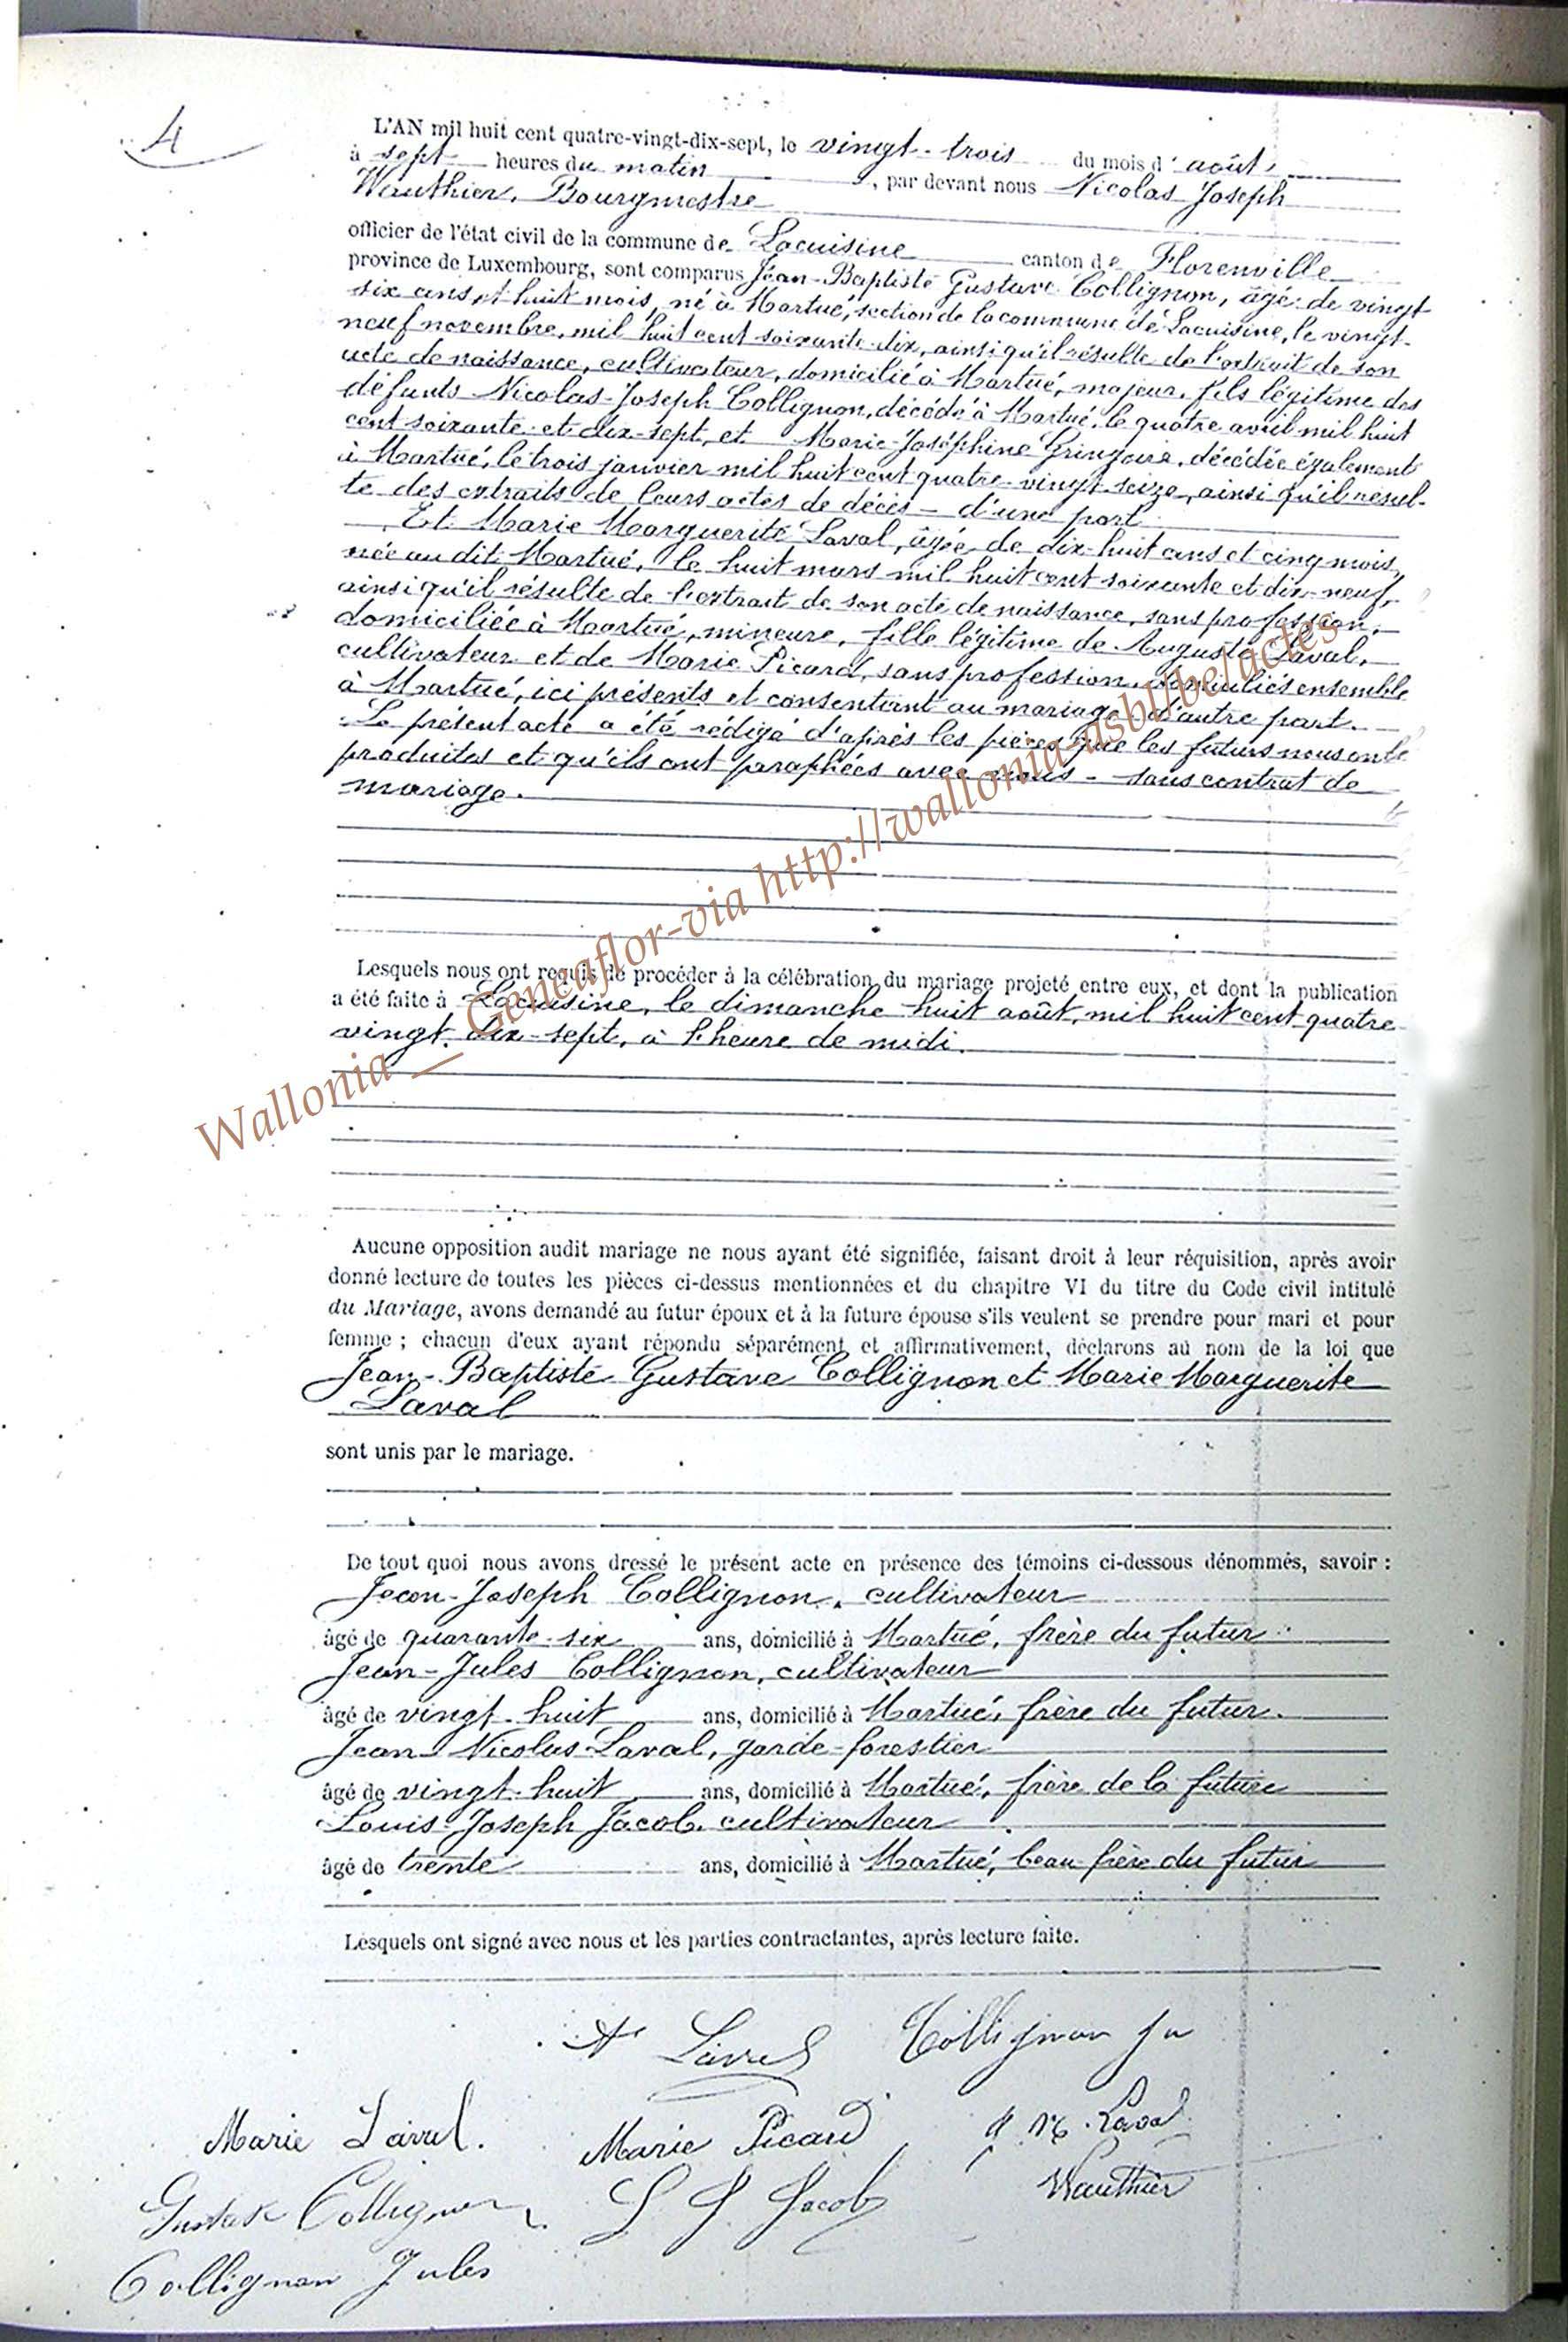 4
L'AN mil huit cent quatre-vingt-dix-sept, le vingt-trois du mois d'août,
à sept heures du matin, par devant nous Nicolas Joseph
Wauthier, Bourgmestre
officier de l'état civil de la commune de Lacuisine canton de Florenville
province de Luxembourg, sont comparus Jean-Baptiste Gustave Collignon, âgé de vingt
six ans et huit mois, né à Martué, section de la commune de Lacuisine, le vingt-
neuf novembre, mil huit cent soixante-dix, ainsi qu'il résulte de l'extrait de son
acte de naissance, cultivateur, domicilié à Martué, majeur, fils légitime des
défunts Nicolas-Joseph Collignon, décédé à Martué, le quatre avril mil huit
cent soixante-et-dix-sept, et Marie-Joséphine Gringoire, décédée également
à Martué, le trois janvier mil huit cent quatre-vingt-seize, ainsi qu'il résul-
te des extraits de leurs actes de décès - d'une part
Et Marie Marguerite Laval, âgée de dix-huit ans et cinq mois,
née au dit Martué, le huit mars mil huit cent soixante et dix-neuf,
ainsi qu'il résulte de l'extrait de son acte de naissance, sans profession,
domiciliée à Martué, mineure, fille légitime de Auguste Laval,
cultivateur et de Marie Picard, sans profession, domiciliés ensemble
à Martué, ici présents et consentant au mariage d'autre part.
Le présent acte a été rédigé d'après les pièces que les futurs nous ont
produites et qu'ils ont paraphées avec nous - sans contrat de
mariage.
Lesquels nous ont requis de procéder à la célébration du mariage projeté entre eux, et dont la publication
a été faite à Lacuisine, le dimanche huit août, mil huit cent quatre
vingt-dix-sept, à l'heure de midi.
Wallonia _ Geneaflor-via http://wallonia-asbl/be/actes
Aucune opposition audit mariage ne nous ayant été signifiée, faisant droit à leur réquisition, après avoir
donné lecture de toutes les pièces ci-dessus mentionnées et du chapitre VI du titre du Code civil intitulé
du Mariage, avons demandé au futur époux et à la future épouse s'ils veulent se prendre pour mari et pour
femme ; chacun d'eux ayant répondu séparément et affirmativement, déclarons au nom de la loi que
Jean-Baptiste Gustave Collignon et Marie Marguerite
Laval
sont unis par le mariage.
De tout quoi nous avons dressé le présent acte en présence des témoins ci-dessous dénommés, savoir :
Jean-Joseph Collignon, cultivateur
âgé de quarante-six ans, domicilié à Martué, frère du futur
Jean-Jules Collignon, cultivateur
âgé de vingt-huit ans, domicilié à Martué, frère du futur.
Jean Nicolas Laval, garde-forestier
âgé de vingt-huit ans, domicilié à Martué, frère de la future
Louis-Joseph Jacob, cultivateur
âgé de trente ans, domicilié à Martué, beau-frère du futur
Lesquels ont signé avec nous et les parties contractantes, après lecture faite.
A Laval Collignon
Marie Laval. Marie Picard Laval
Gustave Collignon L J Jacob Wauthier
Collignon Jules